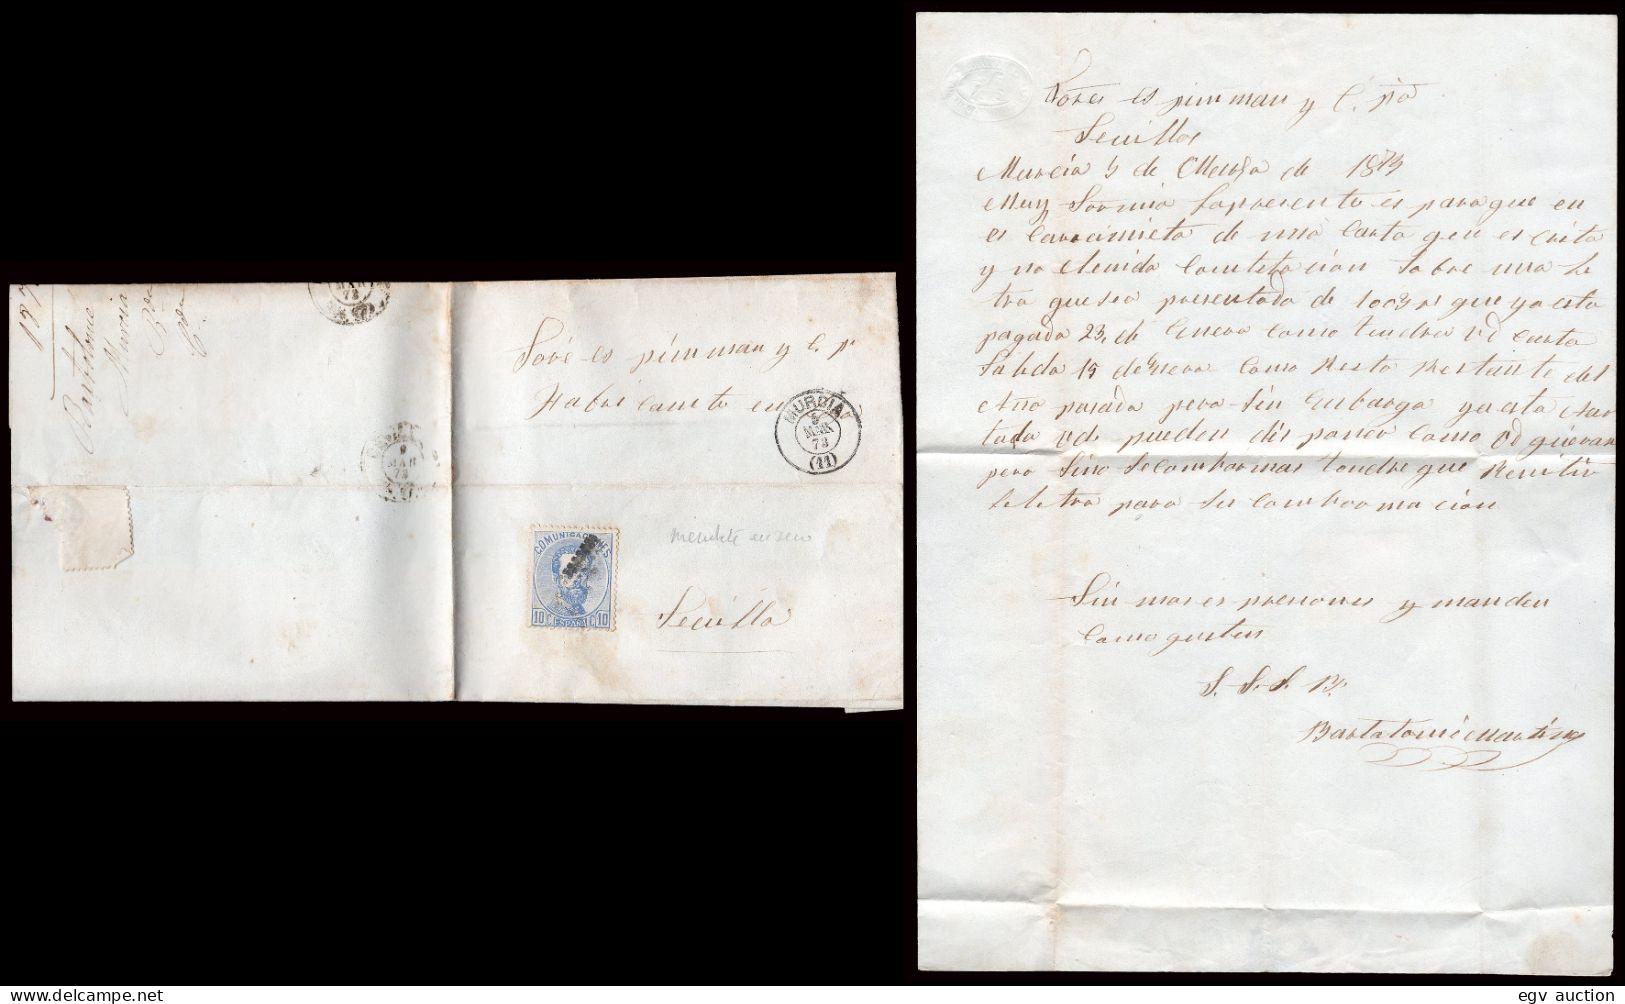 187
Bartolome
Murcia
MAR
73
9
MAR
73
Soré es pinmman y C. pa
Habri cante en
MURCIA
5
MAR
73
(11)
COMUNICACIONES
10 C. ESPAÑA C. 10
Sevilla
Sores es pinmman y C. pa
Sevilla
Murcia 5 de Marso de 1873
Muy Sor mio la presente es para que en
es conocimieto de una Carta que es crita
y no e tenido Contetacion Sobre una le
tra que sea presentada de que ya esta
pagada 23, de Enero Como tendra Vd Carta
Salida 15 de Enero Como Resto Restante del
Año pasado pero sin Enbargo ya esta
tada Vds pueden dis poner Como Vd quieran
pero Sino se combormas tendre que Remitir
le letra para su Comborma cion
Sin mas es presiones y manden
Como gusten
S. S. S. B.
Bartolomé Martinez
egv auction